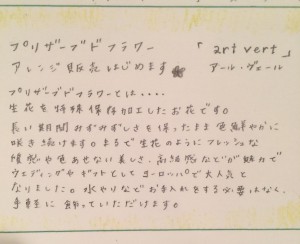 プリザーブドフラワー 「art vert」
アレンジ販売はじめます アール・ヴェール
プリザーブドフラワーとは・・・・
生花を特殊保存加工したお花です。
長い期間みずみずしさを保ったまま色鮮やかに
咲き続けます。まるで生花のようにフレッシュな
質感や色あせない美しさ、高級感などが魅力で
ウェディングやギフトとしてヨーロッパで大人気と
なりました。水やりなどお手入れをする必要はなく、
手軽に飾っていただけます。